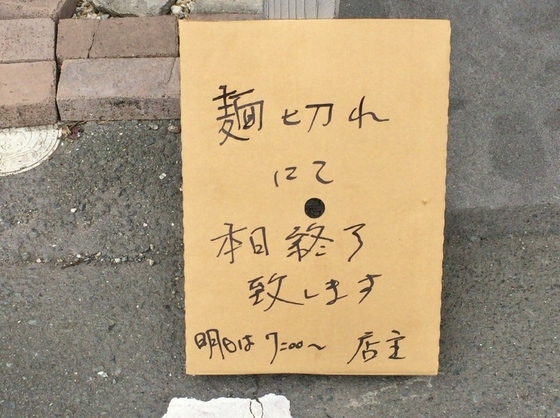 麺切れ
にて
本日終了
致します
明日は7:00〜 店主